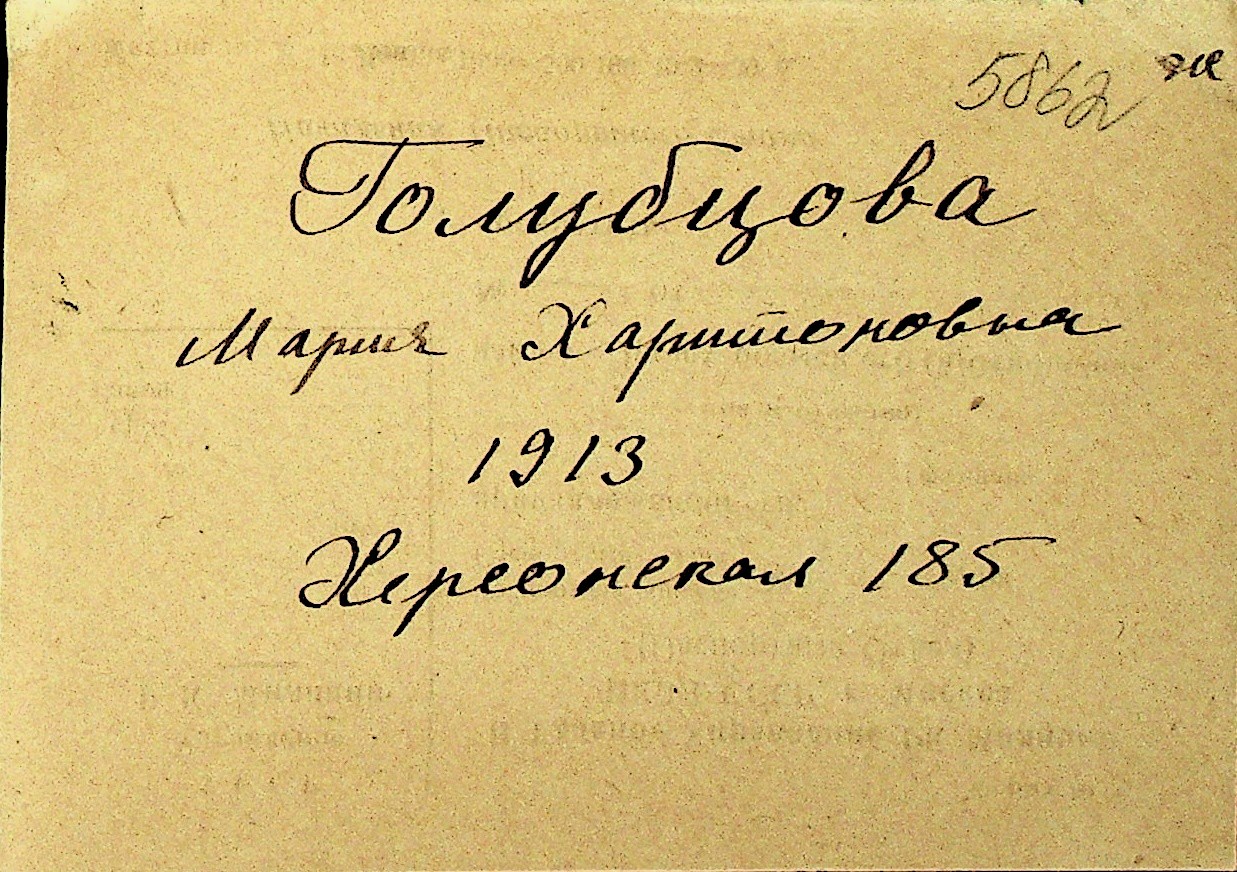 5862 же
Голубцова
Мария Харитоновна
1913
Херсонская 185